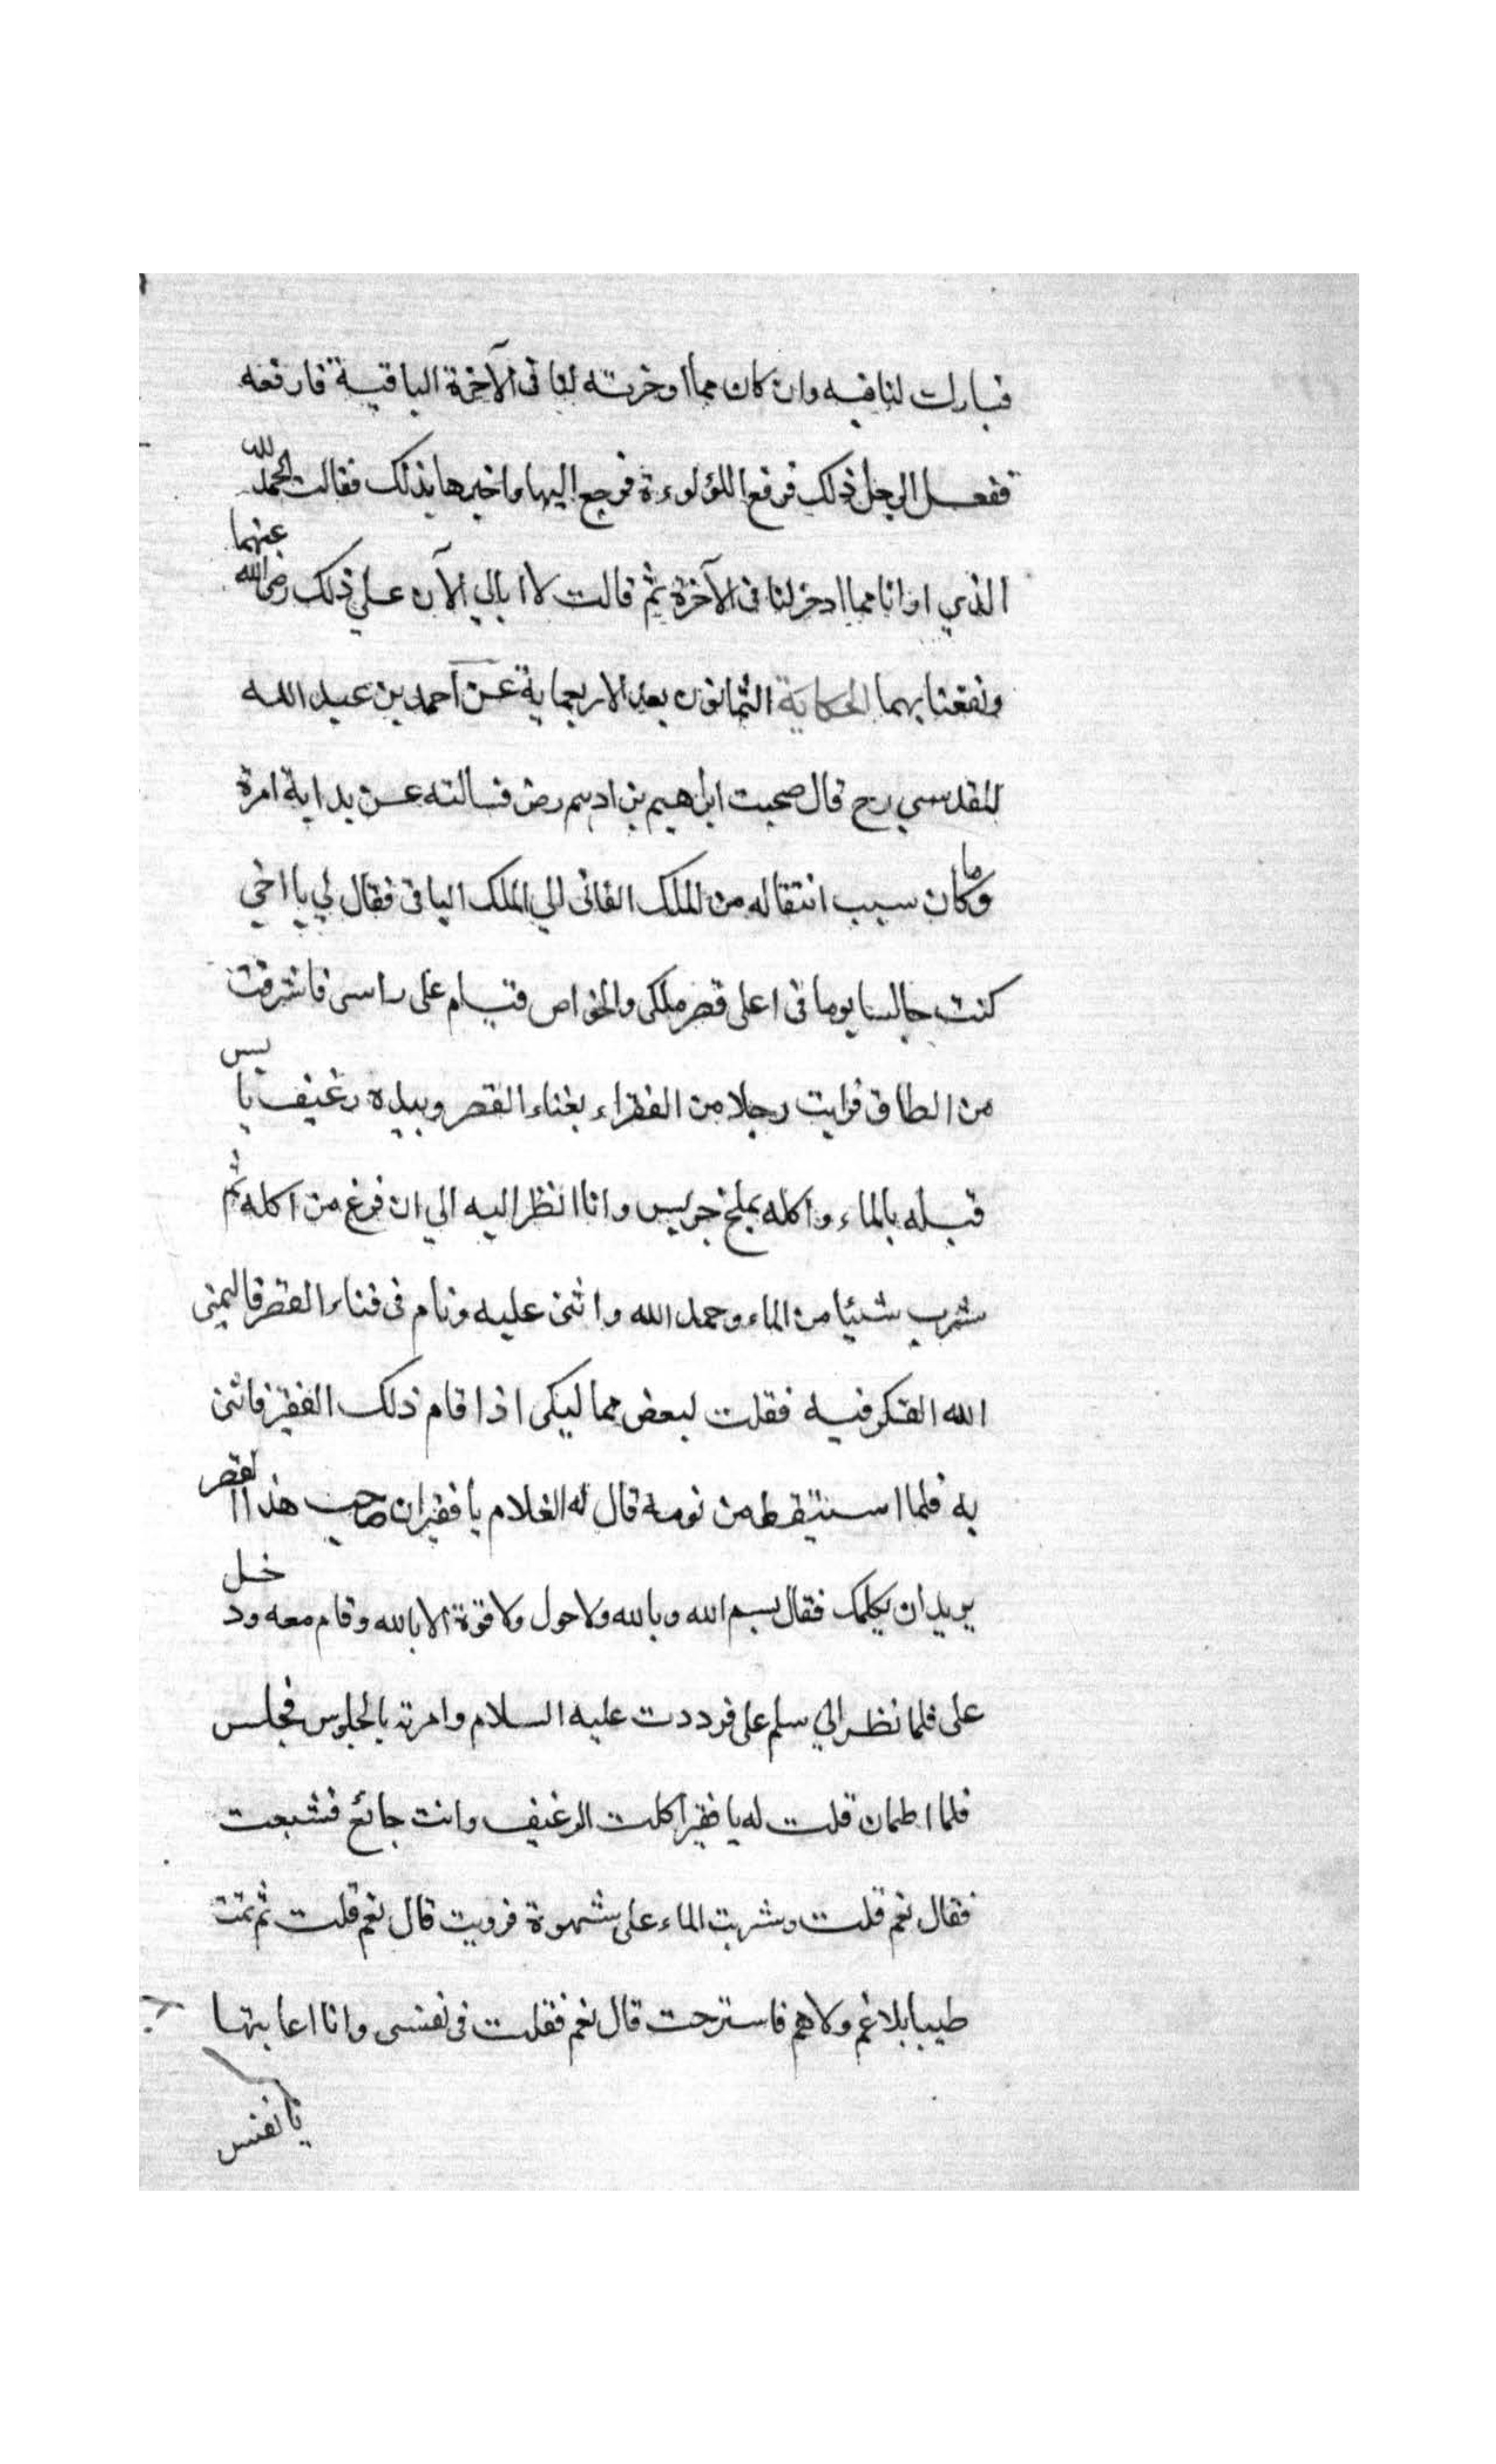 فبارك لنا فيه وان كان مما اوخرته لنا فى الآخرة الباقية فارفعه
ففعل الرجل ذلك فرفع اللؤلوءة فرجع اليها واخبرها بذلك فقالت الحمد لله
الذي ارانا مما ادخر لنا فى الآخرة ثم قالت لا ابالي الآن علي ذلك رضى الله عنهما
ونفعنا بهما الحكاية الثمانون بعد الاربعماية عن احمد بن عبد الله
المقدسي رح قال صحبت ابراهيم بن ادهم رض فسالته عن بداية امرة
وما كان سبب انتقاله من الملك الفانى الي الملك الباقى فقال لي يا اخي
كنت جالسا يوما فى اعلى قصر ملكى والخواص قيام على راسى فاشرفت
من الطاق فرايت رجلا من الفقراء بفناء القصر وبيده رغيف يابس
فبله بالماء واكله بملح جريس وانا انظر اليه الي ان فرغ من اكله ثم
شرب شيئا من الماء وحمد الله واثنى عليه ونام فى فناء القصر فالهمنى
الله الفكر فيه فقلت لبعض مماليكى اذا قام ذلك الفقير فائنى
به فلما استيقظ من نومه قال له الغلام يا فقير ان صاحب هذا القصر
يريد ان يكلمك فقال بسم الله وبالله ولا حول ولا قوة الا بالله وقام معه ودخل
على فلما نظر الي سلم على فرددت عليه السلام وامرته بالجلوس فجلس
فلما اطمان قلت له يا فقير اكلت الرغيف وانت جائع فشبعت
فقال نعم قلت وشربت الماء على شهوة فرويت قال نعم قلت ثم نمت
طيبا بلا غم ولا هم فاسترحت قال نعم فقلت فى نفسى وانا اعاتبها
يا نفس